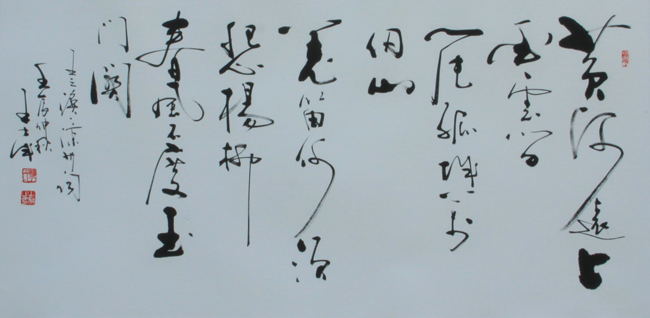 黄河遠上
白雲間
一片孤城万
仞山
羌笛何須
怨楊柳
春風不度玉
门關
王之渙凉州词
壬辰仲秋